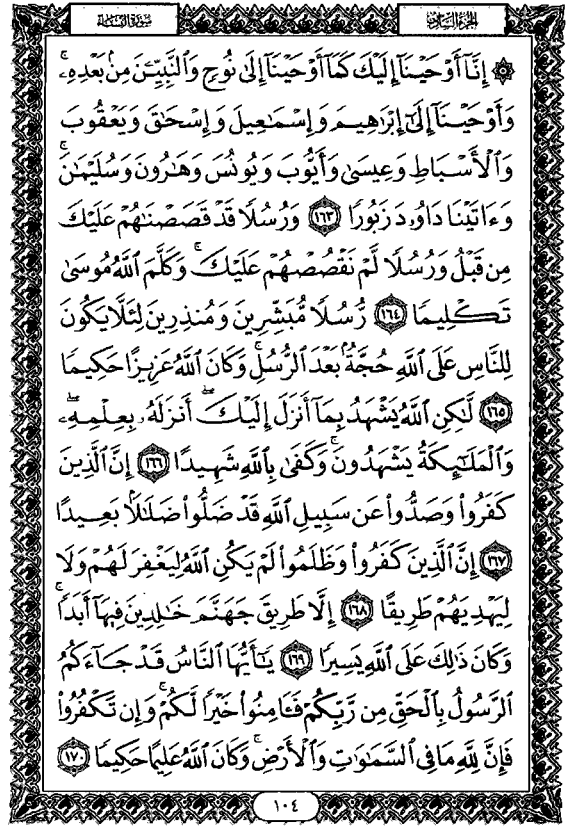 الجزء السادس
سورة النساء
۞ إِنَّآ أَوْحَيْنَآ إِلَيْكَ كَمَآ أَوْحَيْنَآ إِلَىٰ نُوحٍ وَٱلنَّبِيِّـۧنَ مِنۢ بَعْدِهِۦ ۚ
وَأَوْحَيْنَآ إِلَىٰٓ إِبْرَٰهِيمَ وَإِسْمَـٰعِيلَ وَإِسْحَـٰقَ وَيَعْقُوبَ
وَٱلْأَسْبَاطِ وَعِيسَىٰ وَأَيُّوبَ وَيُونُسَ وَهَـٰرُونَ وَسُلَيْمَـٰنَ ۚ
وَءَاتَيْنَا دَاوُۥدَ زَبُورًا ١٦٣ وَرُسُلًا قَدْ قَصَصْنَـٰهُمْ عَلَيْكَ
مِن قَبْلُ وَرُسُلًا لَّمْ نَقْصُصْهُمْ عَلَيْكَ ۚ وَكَلَّمَ ٱللَّهُ مُوسَىٰ
تَكْلِيمًا ١٦٤ رُّسُلًا مُّبَشِّرِينَ وَمُنذِرِينَ لِئَلَّا يَكُونَ
لِلنَّاسِ عَلَى ٱللَّهِ حُجَّةٌۢ بَعْدَ ٱلرُّسُلِ ۚ وَكَانَ ٱللَّهُ عَزِيزًا حَكِيمًا
١٦٥ لَّـٰكِنِ ٱللَّهُ يَشْهَدُ بِمَآ أَنزَلَ إِلَيْكَ ۖ أَنزَلَهُۥ بِعِلْمِهِۦ ۖ
وَٱلْمَلَـٰٓئِكَةُ يَشْهَدُونَ ۚ وَكَفَىٰ بِٱللَّهِ شَهِيدًا ١٦٦ إِنَّ ٱلَّذِينَ
كَفَرُوا۟ وَصَدُّوا۟ عَن سَبِيلِ ٱللَّهِ قَدْ ضَلُّوا۟ ضَلَـٰلًۢا بَعِيدًا
١٦٧ إِنَّ ٱلَّذِينَ كَفَرُوا۟ وَظَلَمُوا۟ لَمْ يَكُنِ ٱللَّهُ لِيَغْفِرَ لَهُمْ وَلَا
لِيَهْدِيَهُمْ طَرِيقًا ١٦٨ إِلَّا طَرِيقَ جَهَنَّمَ خَـٰلِدِينَ فِيهَآ أَبَدًا ۚ
وَكَانَ ذَٰلِكَ عَلَى ٱللَّهِ يَسِيرًا ١٦٩ يَـٰٓأَيُّهَا ٱلنَّاسُ قَدْ جَآءَكُمُ
ٱلرَّسُولُ بِٱلْحَقِّ مِن رَّبِّكُمْ فَـَٔامِنُوا۟ خَيْرًا لَّكُمْ ۚ وَإِن تَكْفُرُوا۟
فَإِنَّ لِلَّهِ مَا فِى ٱلسَّمَـٰوَٰتِ وَٱلْأَرْضِ ۚ وَكَانَ ٱللَّهُ عَلِيمًا حَكِيمًا ١٧٠
١٠٤